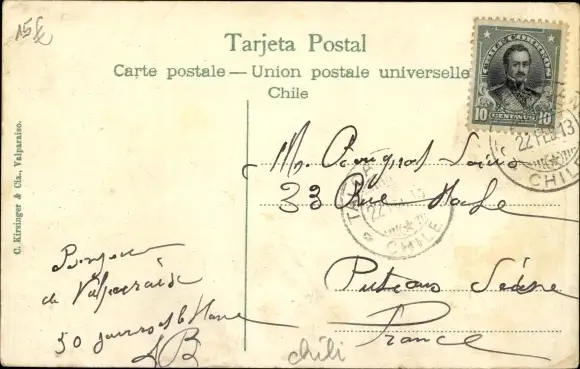 15 £
Tarjeta Postal
Carte postale — Union postale universelle
Chile
CHILE CORREOS
10 CENTAVOS 10
22 FEB 13
CHILE
C. Kirsinger & Cia., Valparaiso.
Mr
33 Rue
TAL
22
CHILE
Puteaux Seine
France
Bonjour
de Valparaiso
50 jours
AB
chili